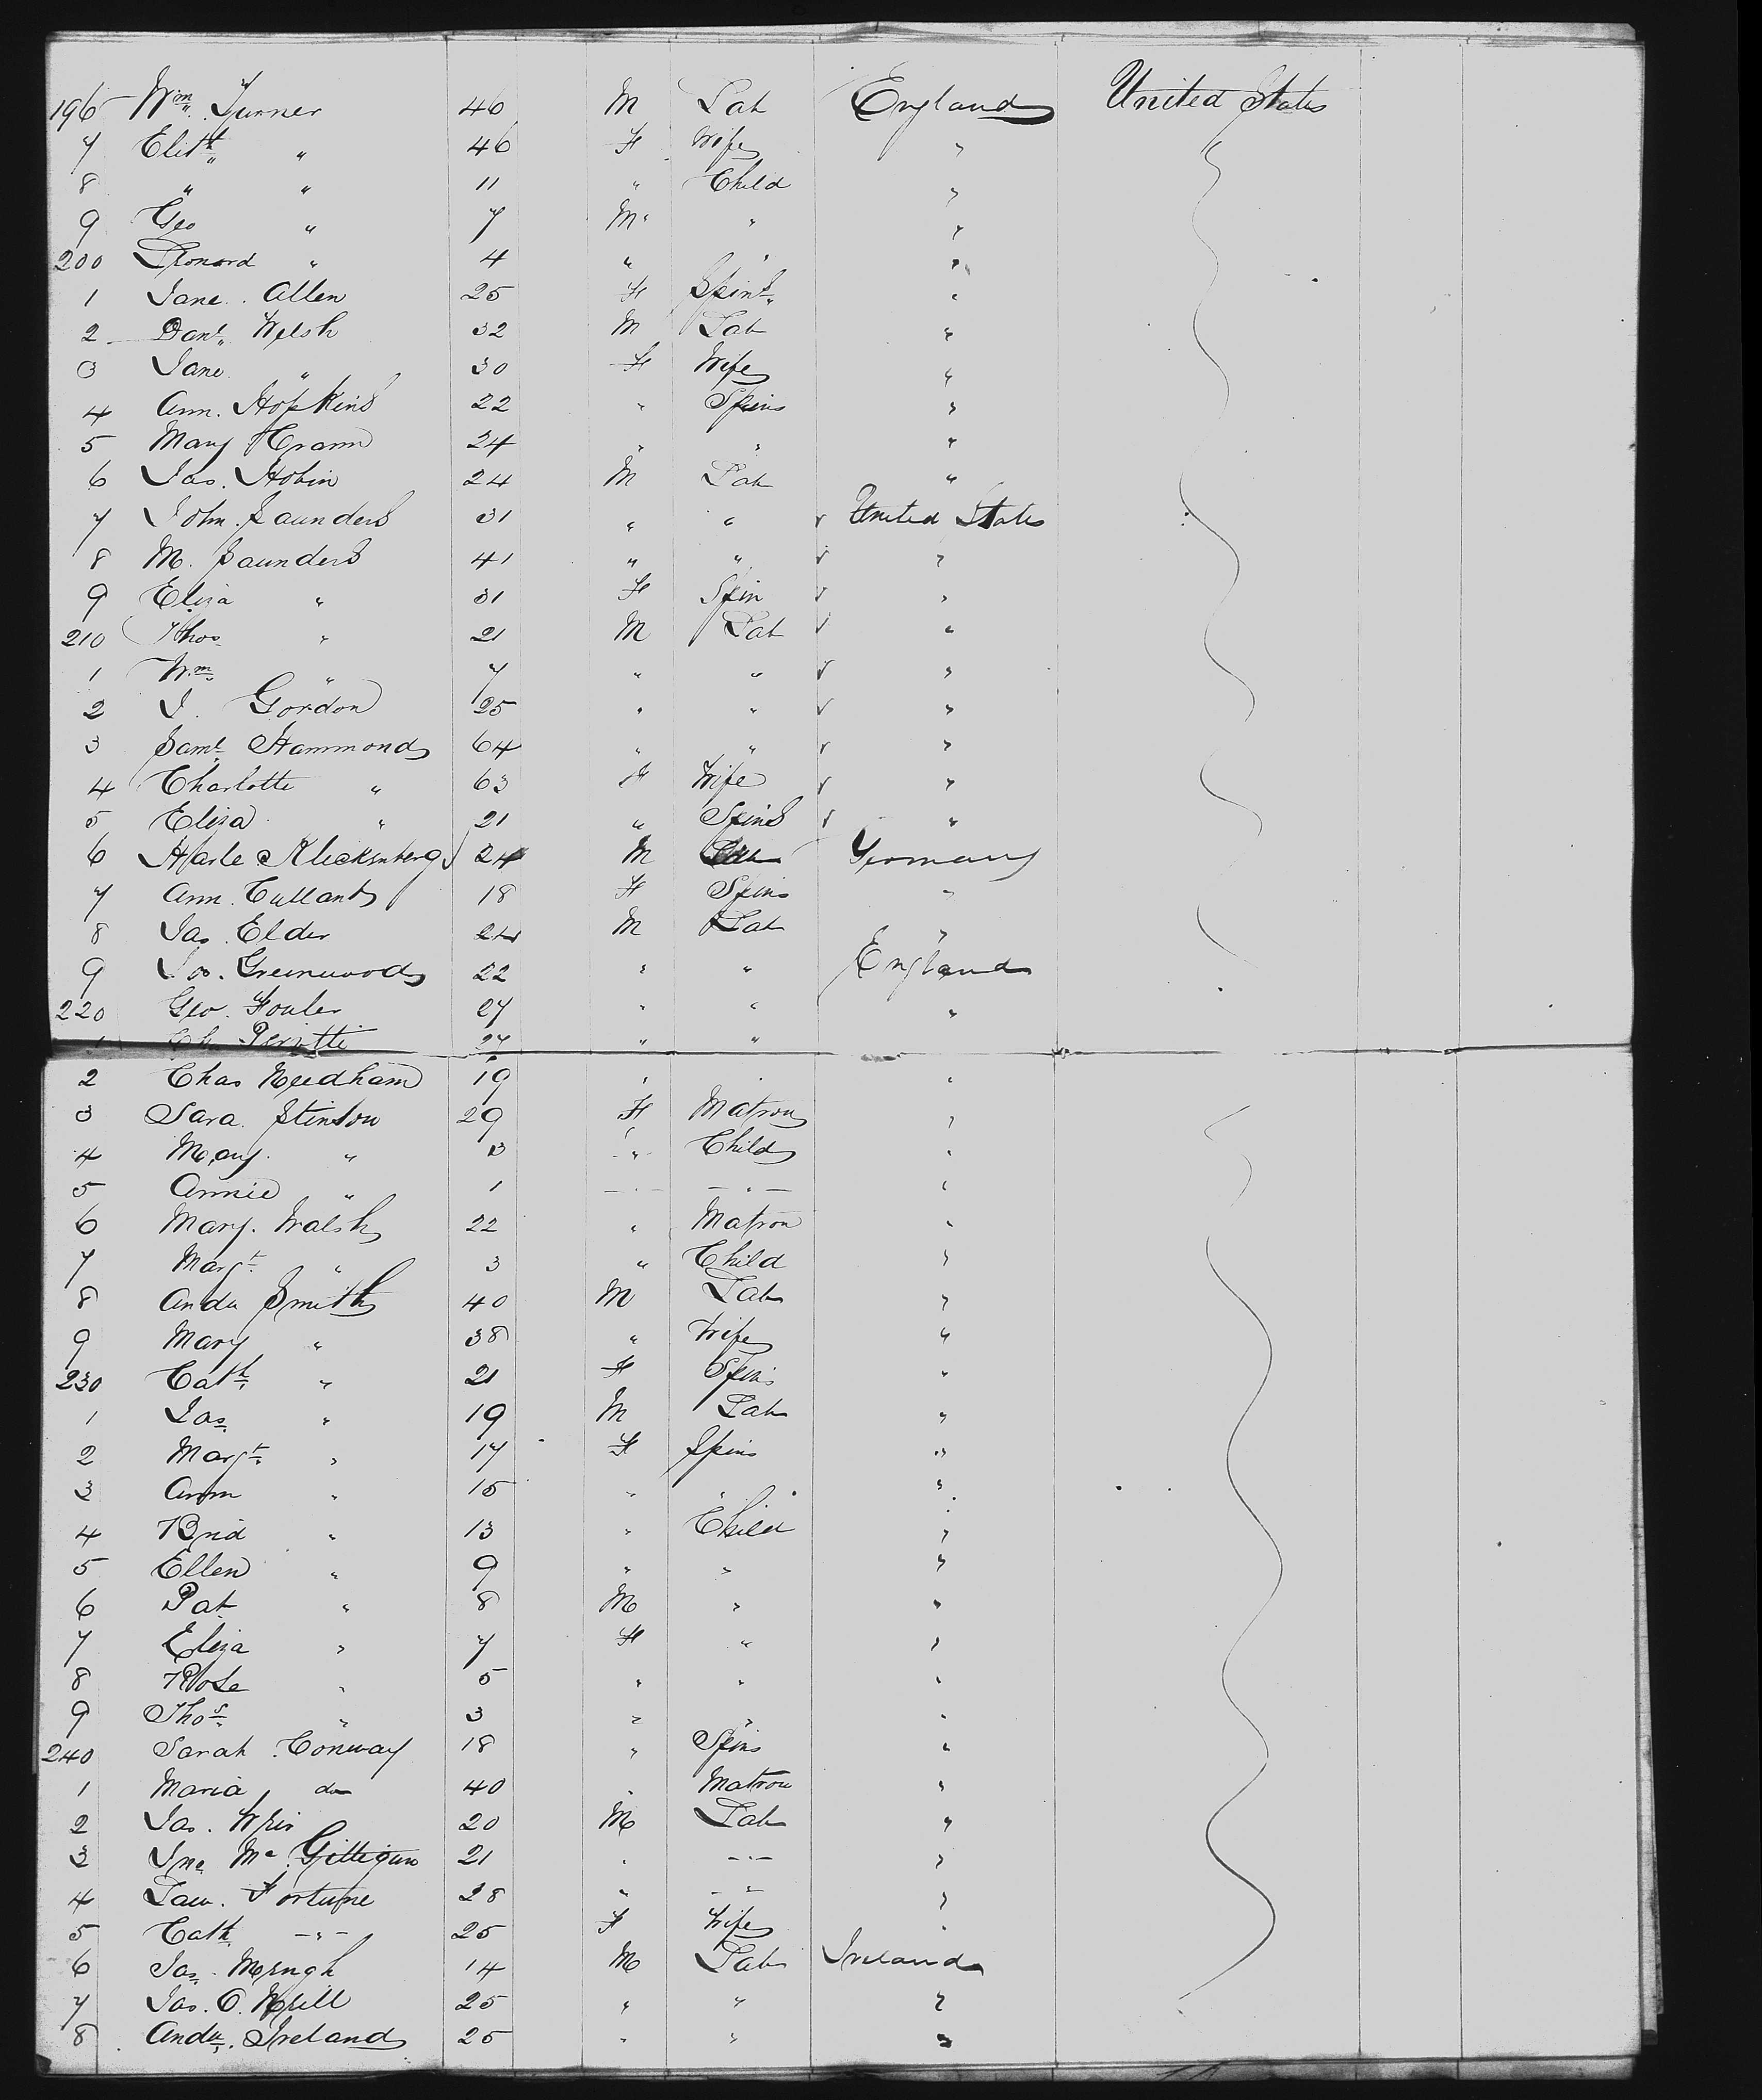 196 Wm. Turner 46 M Lab England United States
7 Elizth " 46 F Wife "
8 " " 11 " Child "
9 Geo " 7 M " "
200 Leonard " 4 " " "
1 Jane Allen 25 F Spinr "
2 Danl. Welsh 32 M Lab "
3 Jane " 30 F Wife "
4 Ann. Hopkins 22 " Spins "
5 Mary 24 " " "
6 Jas. Hobin 24 M Lab "
7 John Saunders 31 " " United States
8 M. Saunders 41 " " "
9 Eliza " 31 F Spin "
210 Thos " 21 M Lab "
1 Wm " 7 " " "
2 J. Gordon 25 " " "
3 Saml Hammond 64 " " "
4 Charlotte " 63 F Wife "
5 Eliza " 21 " Spins "
6 24 M Lab Germany
7 Ann. 18 F Spins "
8 Jas. Elder 24 M Lab "
9 Jos. Greenwood 22 " " England
220 Geo. Fowler 27 " " "
1 27 " "
2 Chas Needham 19 " " "
3 Sara Stinson 29 F Matron "
4 Mary " 3 " Child "
5 Annie " 1 " " "
6 Mary. Walsh 22 " Matron "
7 Margt " 3 " Child "
8 Andw Smith 40 M Lab "
9 Mary " 38 " Wife "
230 Cath " 21 F Spins "
1 Jas " 19 M Lab "
2 Margt " 17 F Spins "
3 Ann " 15 " " "
4 Brid " 13 " Child "
5 Ellen " 9 " " "
6 Pat " 8 M " "
7 Eliza " 7 F " "
8 Rose " 5 " " "
9 Thos " 3 " " "
240 Sarah Conway 18 " Spins "
1 Maria do 40 " Matron "
2 Jas. 20 M Lab "
3 Jno. Mc Gilligun 21 " " "
4 Law. Fortune 28 " " "
5 Cath " 25 F Wife "
6 Jas. 14 M Lab Ireland
7 Jas. O. Neill 25 " " "
8 Andw. Ireland 25 " " "